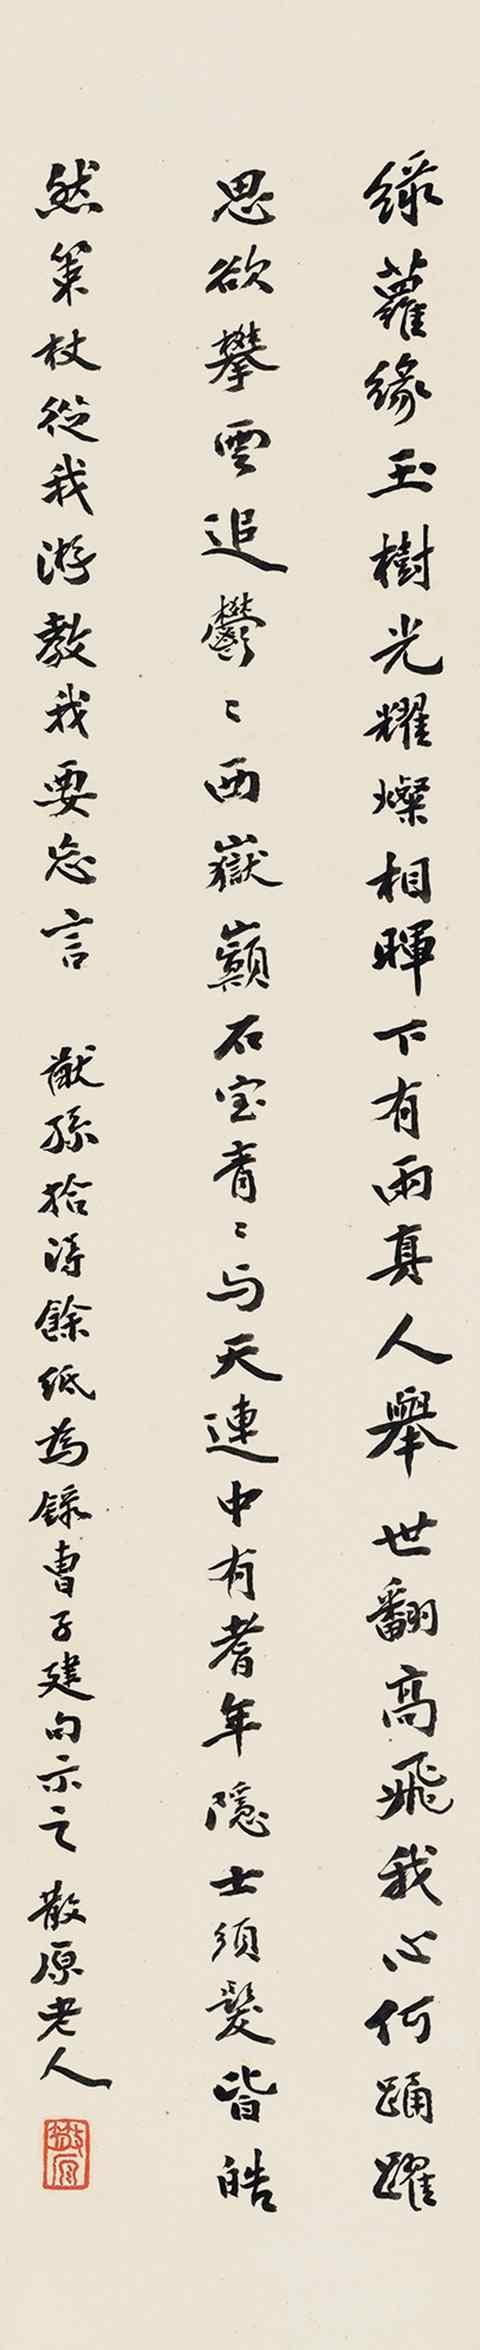 綠蘿緣玉樹光耀燦相暉下有兩真人舉世翻高飛我心何踊躍
思欲攀雲追鬱〻西嶽巔石室青〻与天連中有耆年隱士須髮皆皓
然策杖從我游教我要忘言 猷孫拾得餘紙為錄曹子建句示之 散原老人
散原